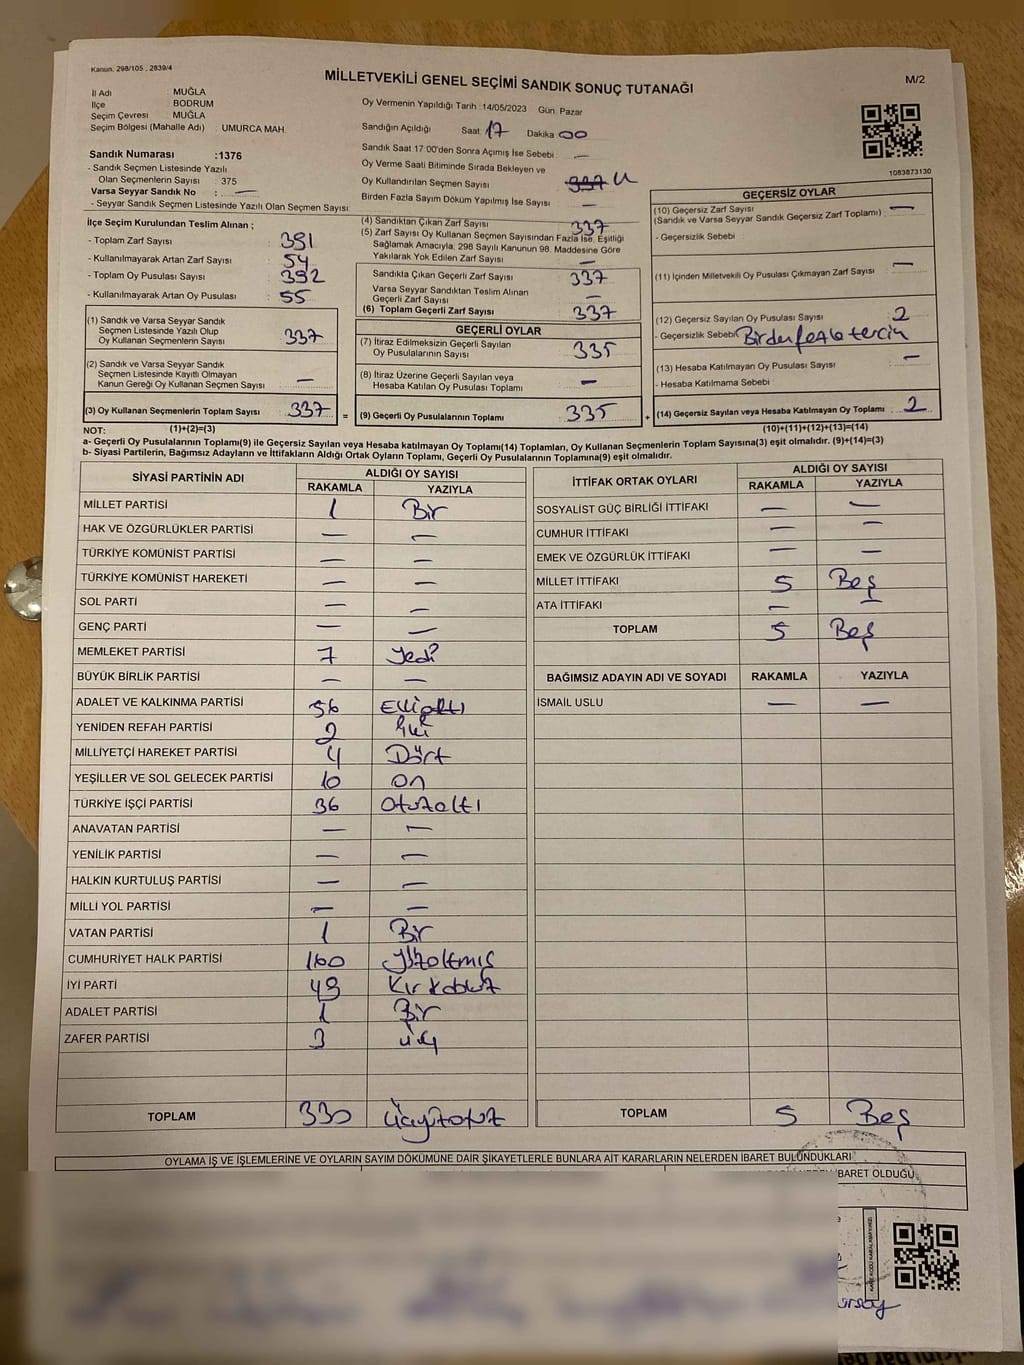 Kanun: 298/105 , 2839/4
MİLLETVEKİLİ GENEL SEÇİMİ SANDIK SONUÇ TUTANAĞI
M/2
İl Adı MUĞLA
İlçe BODRUM
Seçim Çevresi MUĞLA
Seçim Bölgesi (Mahalle Adı) : UMURCA MAH.
Oy Vermenin Yapıldığı Tarih : 14/05/2023 Gün: Pazar
Sandığın Açıldığı Saat 17 Dakika 00
Sandık Saat 17:00'den Sonra Açılmış İse Sebebi : —
Oy Verme Saati Bitiminde Sırada Bekleyen ve
Oy Kullandırılan Seçmen Sayısı
Birden Fazla Sayım Döküm Yapılmış İse Sayısı —
1083873130
Sandık Numarası :1376
- Sandık Seçmen Listesinde Yazılı
Olan Seçmenlerin Sayısı : 375
Varsa Seyyar Sandık No : —
- Seyyar Sandık Seçmen Listesinde Yazılı Olan Seçmen Sayısı:
İlçe Seçim Kurulundan Teslim Alınan ;
- Toplam Zarf Sayısı : 391
- Kullanılmayarak Artan Zarf Sayısı : 54
- Toplam Oy Pusulası Sayısı : 392
- Kullanılmayarak Artan Oy Pusulası : 55
(1) Sandık ve Varsa Seyyar Sandık
Seçmen Listesinde Yazılı Olup
Oy Kullanan Seçmenlerin Sayısı 337
(2) Sandık ve Varsa Seyyar Sandık
Seçmen Listesinde Kayıtlı Olmayan
Kanun Gereği Oy Kullanan Seçmen Sayısı —
(3) Oy Kullanan Seçmenlerin Toplam Sayısı 337 =
(4) Sandıktan Çıkan Zarf Sayısı 337
(5) Zarf Sayısı Oy Kullanan Seçmen Sayısından Fazla İse, Eşitliği
Sağlamak Amacıyla; 298 Sayılı Kanunun 98. Maddesine Göre
Yakılarak Yok Edilen Zarf Sayısı —
Sandıkta Çıkan Geçerli Zarf Sayısı 337
Varsa Seyyar Sandıktan Teslim Alınan
Geçerli Zarf Sayısı —
(6) Toplam Geçerli Zarf Sayısı 337
GEÇERLİ OYLAR
(7) İtiraz Edilmeksizin Geçerli Sayılan
Oy Pusulalarının Sayısı 335
(8) İtiraz Üzerine Geçerli Sayılan veya
Hesaba Katılan Oy Pusulası Toplamı —
(9) Geçerli Oy Pusulalarının Toplamı 335 +
GEÇERSİZ OYLAR
(10) Geçersiz Zarf Sayısı —
(Sandık ve Varsa Seyyar Sandık Geçersiz Zarf Toplamı) :
- Geçersizlik Sebebi :
(11) İçinden Milletvekili Oy Pusulası Çıkmayan Zarf Sayısı —
(12) Geçersiz Sayılan Oy Pusulası Sayısı : 2
- Geçersizlik Sebebi : Birden fazla tercih
(13) Hesaba Katılmayan Oy Pusulası Sayısı : —
- Hesaba Katılmama Sebebi :
(14) Geçersiz Sayılan veya Hesaba Katılmayan Oy Toplamı 2
NOT: (1)+(2)=(3) (10)+(11)+(12)+(13)=(14)
a- Geçerli Oy Pusulalarının Toplamı(9) ile Geçersiz Sayılan veya Hesaba katılmayan Oy Toplamı(14) Toplamları, Oy Kullanan Seçmenlerin Toplam Sayısına(3) eşit olmalıdır. (9)+(14)=(3)
b- Siyasi Partilerin, Bağımsız Adayların ve İttifakların Aldığı Ortak Oyların Toplamı, Geçerli Oy Pusulalarının Toplamına(9) eşit olmalıdır.
SİYASİ PARTİNİN ADI ALDIĞI OY SAYISI
RAKAMLA YAZIYLA
MİLLET PARTİSİ 1 Bir
HAK VE ÖZGÜRLÜKLER PARTİSİ — —
TÜRKİYE KOMÜNİST PARTİSİ — —
TÜRKİYE KOMÜNİST HAREKETİ — —
SOL PARTİ — —
GENÇ PARTİ — —
MEMLEKET PARTİSİ 7 Yedi
BÜYÜK BİRLİK PARTİSİ — —
ADALET VE KALKINMA PARTİSİ 56 Elli altı
YENİDEN REFAH PARTİSİ 2 İki
MİLLİYETÇİ HAREKET PARTİSİ 4 Dört
YEŞİLLER VE SOL GELECEK PARTİSİ 10 On
TÜRKİYE İŞÇİ PARTİSİ 36 Otuzaltı
ANAVATAN PARTİSİ — —
YENİLİK PARTİSİ — —
HALKIN KURTULUŞ PARTİSİ — —
MİLLİ YOL PARTİSİ — —
VATAN PARTİSİ 1 Bir
CUMHURİYET HALK PARTİSİ 160 Yüzaltmış
İYİ PARTİ 49 Kırkdokuz
ADALET PARTİSİ 1 Bir
ZAFER PARTİSİ 3 üç
TOPLAM 330 Üçyüzotuz
İTTİFAK ORTAK OYLARI ALDIĞI OY SAYISI
RAKAMLA YAZIYLA
SOSYALİST GÜÇ BİRLİĞİ İTTİFAKI — —
CUMHUR İTTİFAKI — —
EMEK VE ÖZGÜRLÜK İTTİFAKI — —
MİLLET İTTİFAKI 5 Beş
ATA İTTİFAKI — —
TOPLAM 5 Beş
BAĞIMSIZ ADAYIN ADI VE SOYADI RAKAMLA YAZIYLA
İSMAİL USLU — —
TOPLAM 5 Beş
OYLAMA İŞ VE İŞLEMLERİNE VE OYLARIN SAYIM DÖKÜMÜNE DAİR ŞİKAYETLERLE BUNLARA AİT KARARLARIN NELERDEN İBARET BULUNDUKLARI
İBARET OLDUĞU